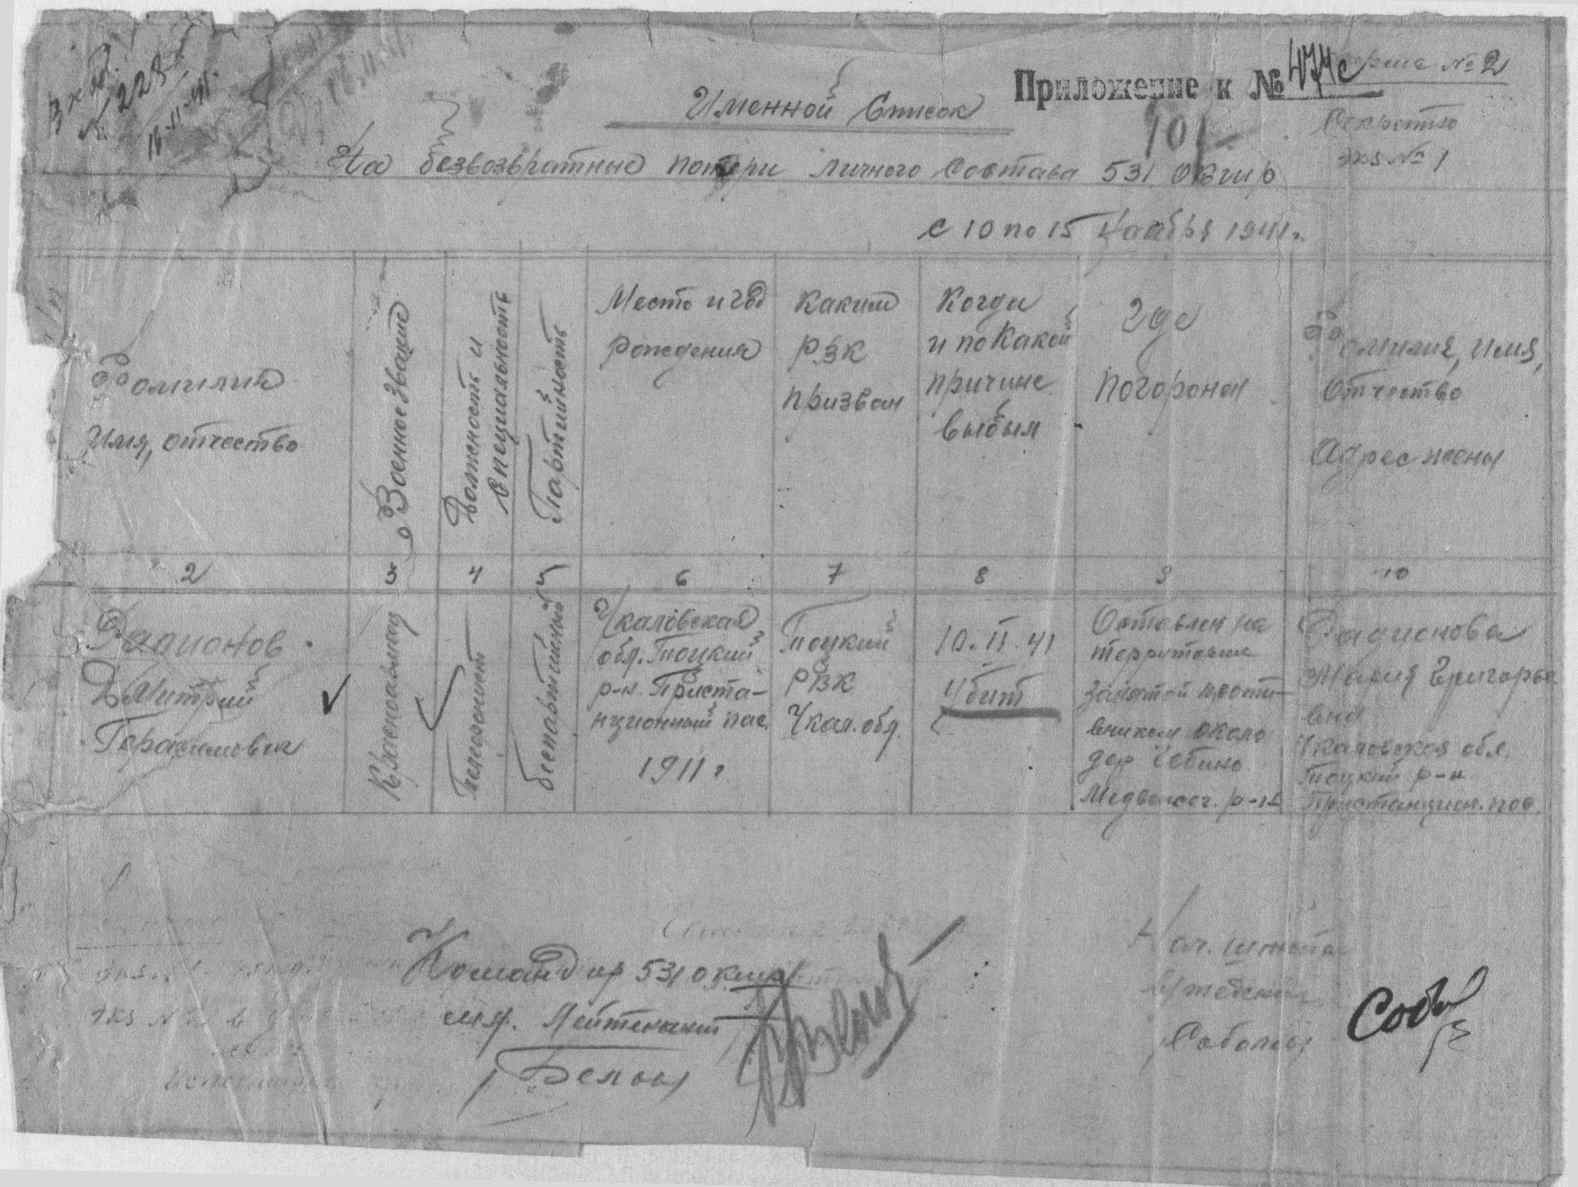 № 228
16-11-41.
Приложение к № 474с
Форма № 2
Именной Список
101
Секретно
экз № 1
На безвозвратные потери личного Состава 531
с 10 по 15 Ноября 1941г.
Фамилия
Имя, отчество
Военное звание
Должность и
Специальность
Партийность
Место и год
рождения
Каким
РВК
призван
Когда
и по Какой
причине
выбыл
Где
похоронен
Фамилия, имя,
Отчество
Адрес жены
2 3 4 5 6 7 8 9 10
Радионов
Дмитрий
Герасимович
Красноармеец
Телефонист
беспартийный
Чкаловская
обл. Тоцкий
р-н. Приста-
нционный пос.
1911 г
Тоцкий
РВК
Чкал. обл.
10. II. 41
Убит
Оставлен на
территории
занятой проти-
вником около
дер Чебино
Медвежьег. р-на
Радионова
Мария Григорье
вна
Чкаловская обл.
Тоцкий р-н
Пристанцион. пос.
Командир 531
мл. Лейтенант
Белых
Нач. штаба
Соболев